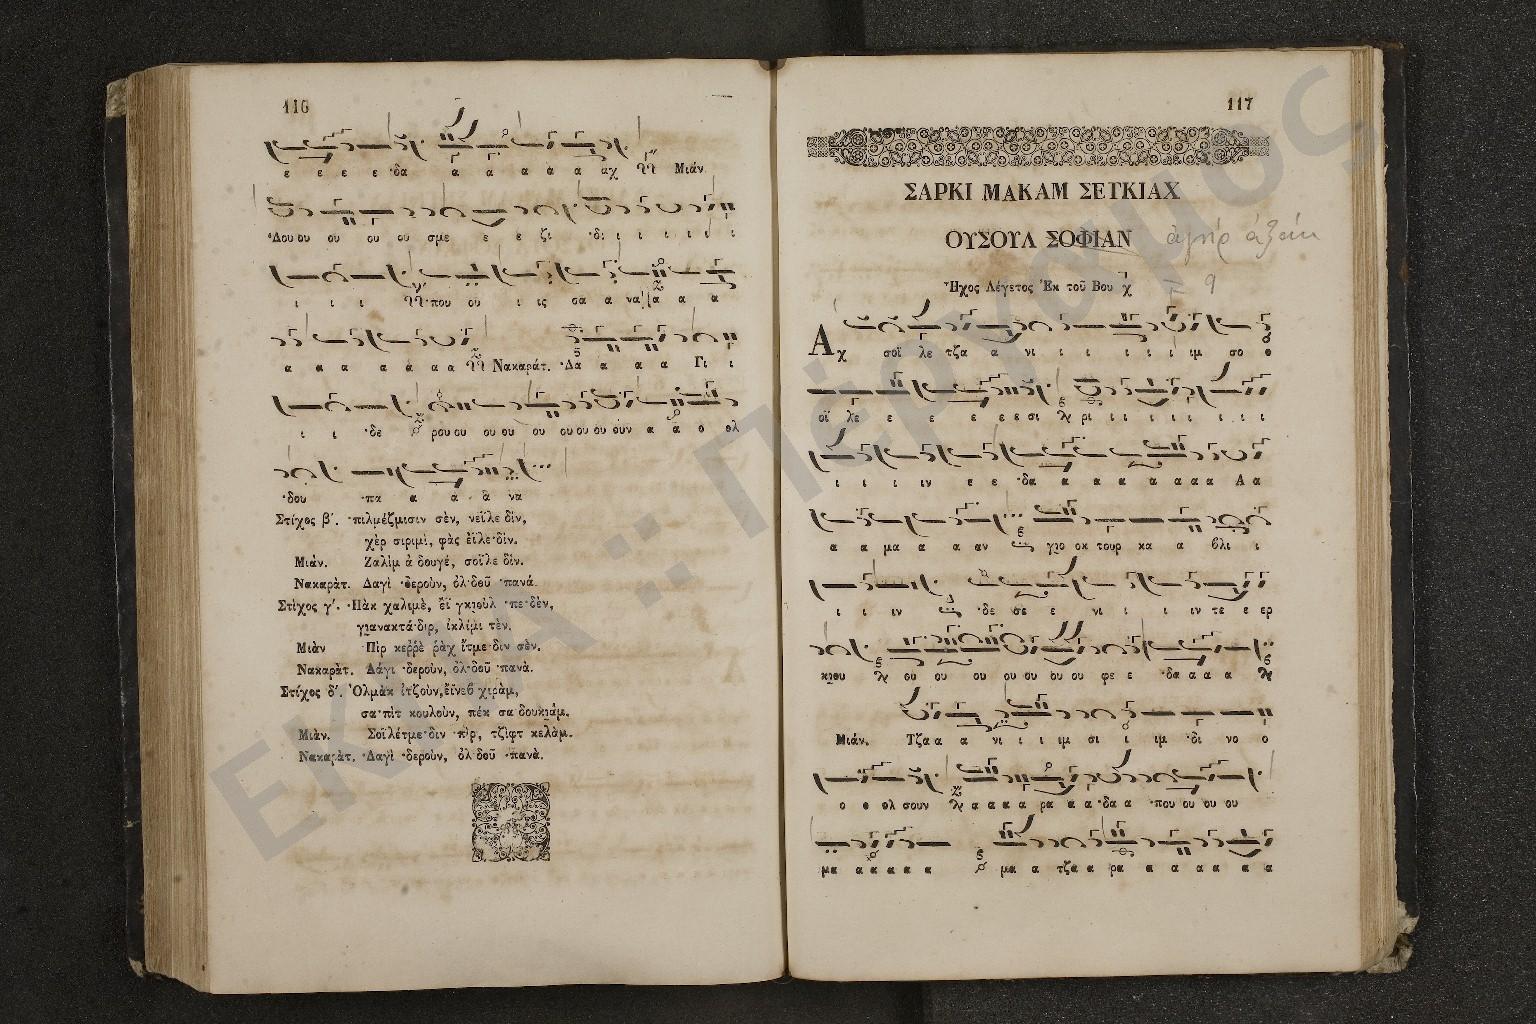 116
ε ε ε ε ·δα α α α α α αχ Μιάν
·Δου ου ου ου ου σμε ε ε ζι ·δι ι ι ι ι ι
ι ι ι ·που ού ι ις σα α να α α α
α α α α α α α Νακαράτ. ·Δα α α α Γι ι
ι ι ·δε ρου ου ου ου ου ου ου ου ούν α α ο ολ
·δου ·πα α α α να
Στίχος β΄. ·πιλμέζμισιν σὲν, νεϊλε δὶν,
χὲρ σιριμὶ, φὰς ἐϊλε·δίν.
Μιάν. Ζαλὶμ ἀ δουγέ, σοϊλε δὶν.
Νακαρὰτ. Δαγὶ ·δεροὺν, ὀλ·δοῦ ·πανά.
Στίχος γ΄. ·Πὰκ χαλιμὲ, ἔϊ γκιοὺλ ·πε·δὲν,
γιανακτά·διρ, ἰκλίμι τὲν.
Μιὰν Πὶρ κεῤῥὲ ῥὰχ ἴτμε·δὶν σέν.
Νακαρὰτ. Δάγι ·δεροὺν, ὀλ·δοῦ ·πανὰ.
Στίχος δ΄. Ὀλμὰκ ἰτζοὺν, ἔϊνεβ χιράμ,
σα·πὶτ κουλοὺν, πέκ σα·δουκιάμ.
Μιὰν. Σοϊλέτμε·δὶν ·πὶρ, τζὶφτ κελάμ.
Νακαρὰτ. ·Δαγὶ ·δεροὺν, ὀλ·δοῦ ·πανὰ.
117
ΣΑΡΚΙ ΜΑΚΑΜ ΣΕΓΚΙΑΧ
ΟΥΣΟΥΛ ΣΟΦΙΑΝ
Ἦχος Λέγετος Ἐκ τοῦ Βου
Αχ σοϊ λε τζα α νι ι ι ι ι ι ιμ σο ο
οϊ λε ε ε ε ε ε ε σι ρι ι ι ι ι ι ι ι ι
ι ι ι ιν ε ε ·δα α α α α α α α Α α
α α μα α α αν γιο οκ τουρ κα α βλι ι
ι ι ιν ·δε σε ε νι ι ι ιν τε ε ερ
κιου ου ου ου ου ου ου ου φε ε ·δα α α α
Μιάν. Τζα α α νι ι ι ιμ σι ι ιμ ·δι νο ο
ο ο ολ σουν α α α α ρα α α ·δα α ·που ου ου ου
μα α α α α μα α τζα α ρα α α α α α
ΕΚΠΑ :: Πέργαμος